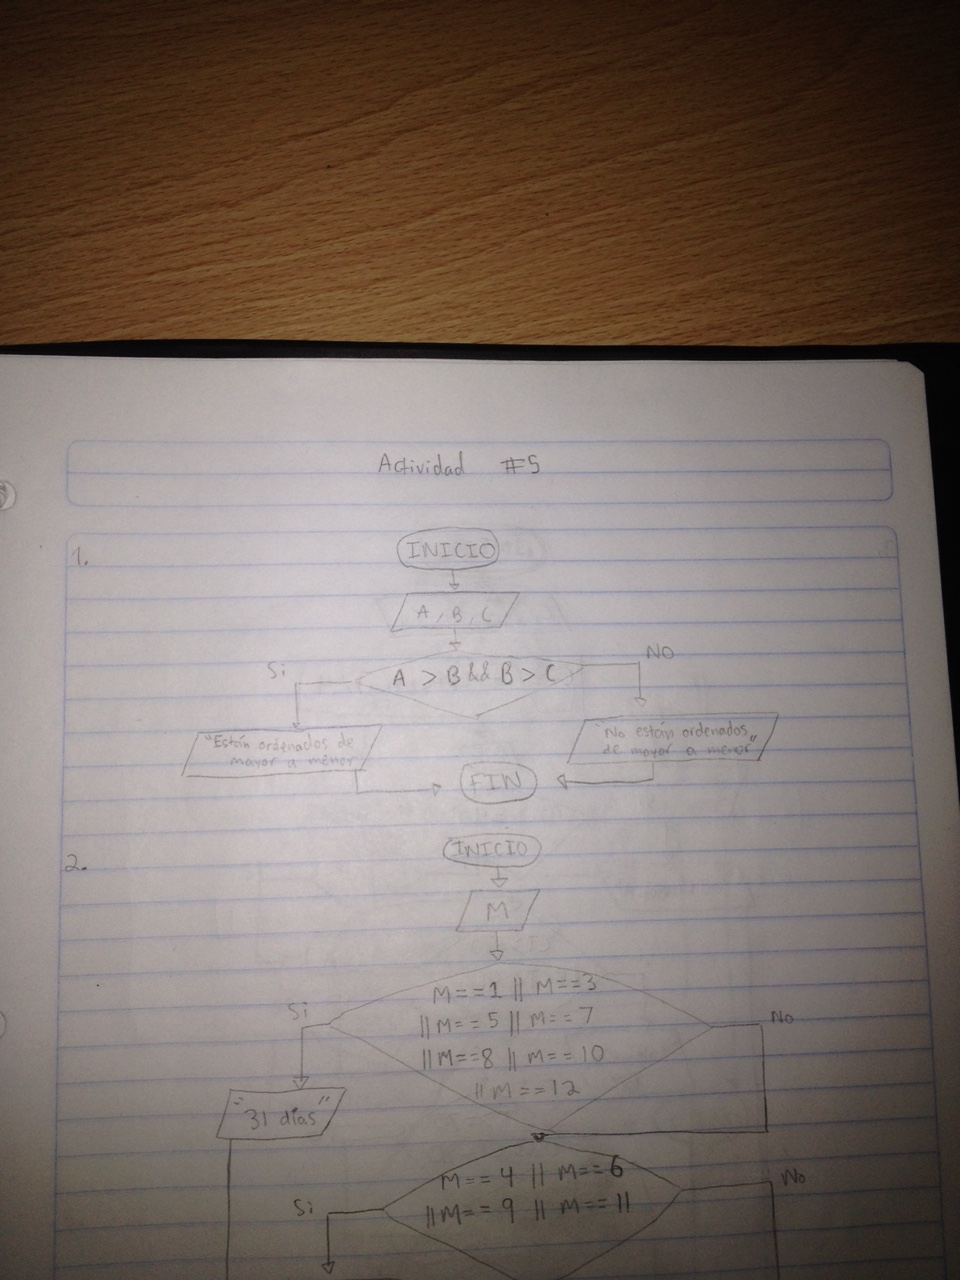 Actividad #5
1.
INICIO
A, B, C
Si
A > B && B > C
NO
"Están ordenados de
mayor a menor"
"No están ordenados
de mayor a menor"
FIN
2.
INICIO
M
Si
M==1 || M==3
|| M==5 || M==7
|| M==8 || M==10
|| M==12
No
"31 días"
M==4 || M==6
|| M==9 || M==11
Si
No